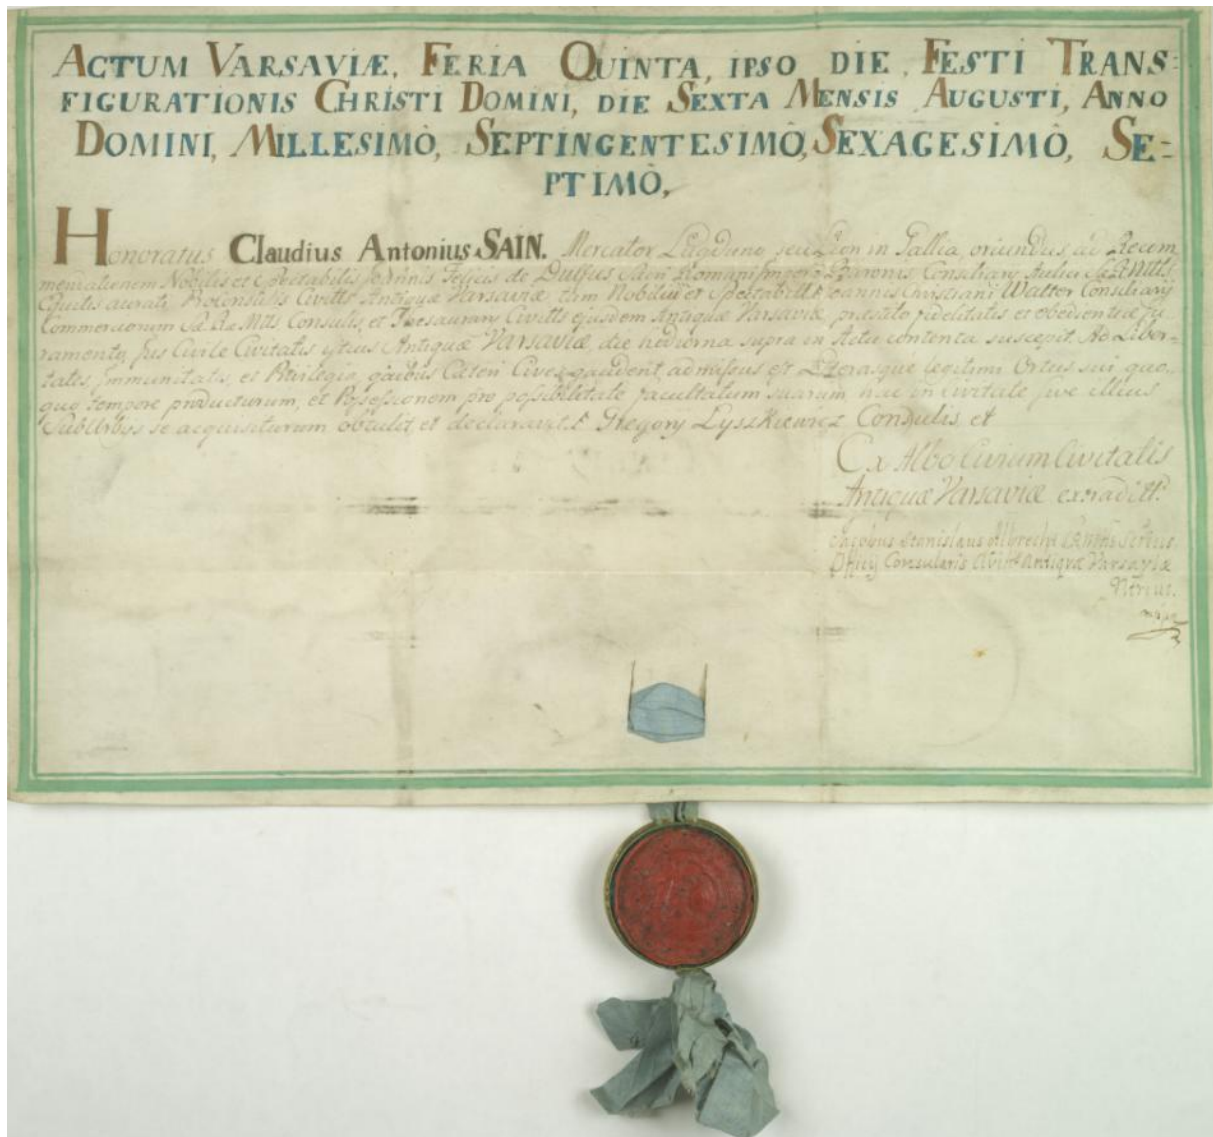 ACTUM VARSAVIÆ, FERIA QUINTA, IPSO DIE, FESTI TRANS=
FIGURATIONIS CHRISTI DOMINI, DIE SEXTA MENSIS AUGUSTI, ANNO
DOMINI, MILLESIMÒ, SEPTINGENTESIMÒ, SEXAGESIMÒ, SE=
PTIMÒ,
Honoratus Claudius Antonius SAIN. Mercator Lugduno seu Lion in Gallia oriundus, ad Recom
mendationem Nobilis et Spectabilis Joannis Felicis de Dulfus Sacri Romani Imperii Baronis, Consiliarij Aulici
Equitis aurati Proconsulis Civittis Antiquæ Varsaviæ tum Nobilis et Spectabilis Joannis Christiani Walter Consiliarij
Commerciorum Sæ Ræ Mttis Consulis, et Thesaurarij Civittis ejusdem Antiquæ Varsaviæ, præstito fidelitatis et obedientiæ ju
ramento, Jus Civile Civitatis istius Antiquæ Varsaviæ, die hodierna supra in Actu contenta suscepit. Ad Liber=
tates, Immunitates, et Privilegia, quibus Cæteri Cives gaudent, admissus est Literasque legitimi Ortus sui, quo=
quo tempore producturum, et Possessionem pro possibilitate facultatum suarum hac in Civitate sive illius
SubUrbijs se acquisiturum obtulit et declaravit. Gregorij Lyszkiewicz Consulis et
Ex Albo Civium Civitatis
Antiquæ Varsaviæ extraditt.
Jacobus Stanislaus Albrecht
Officij Consularis Antiquæ Varsaviæ
Ntrius.
mpp